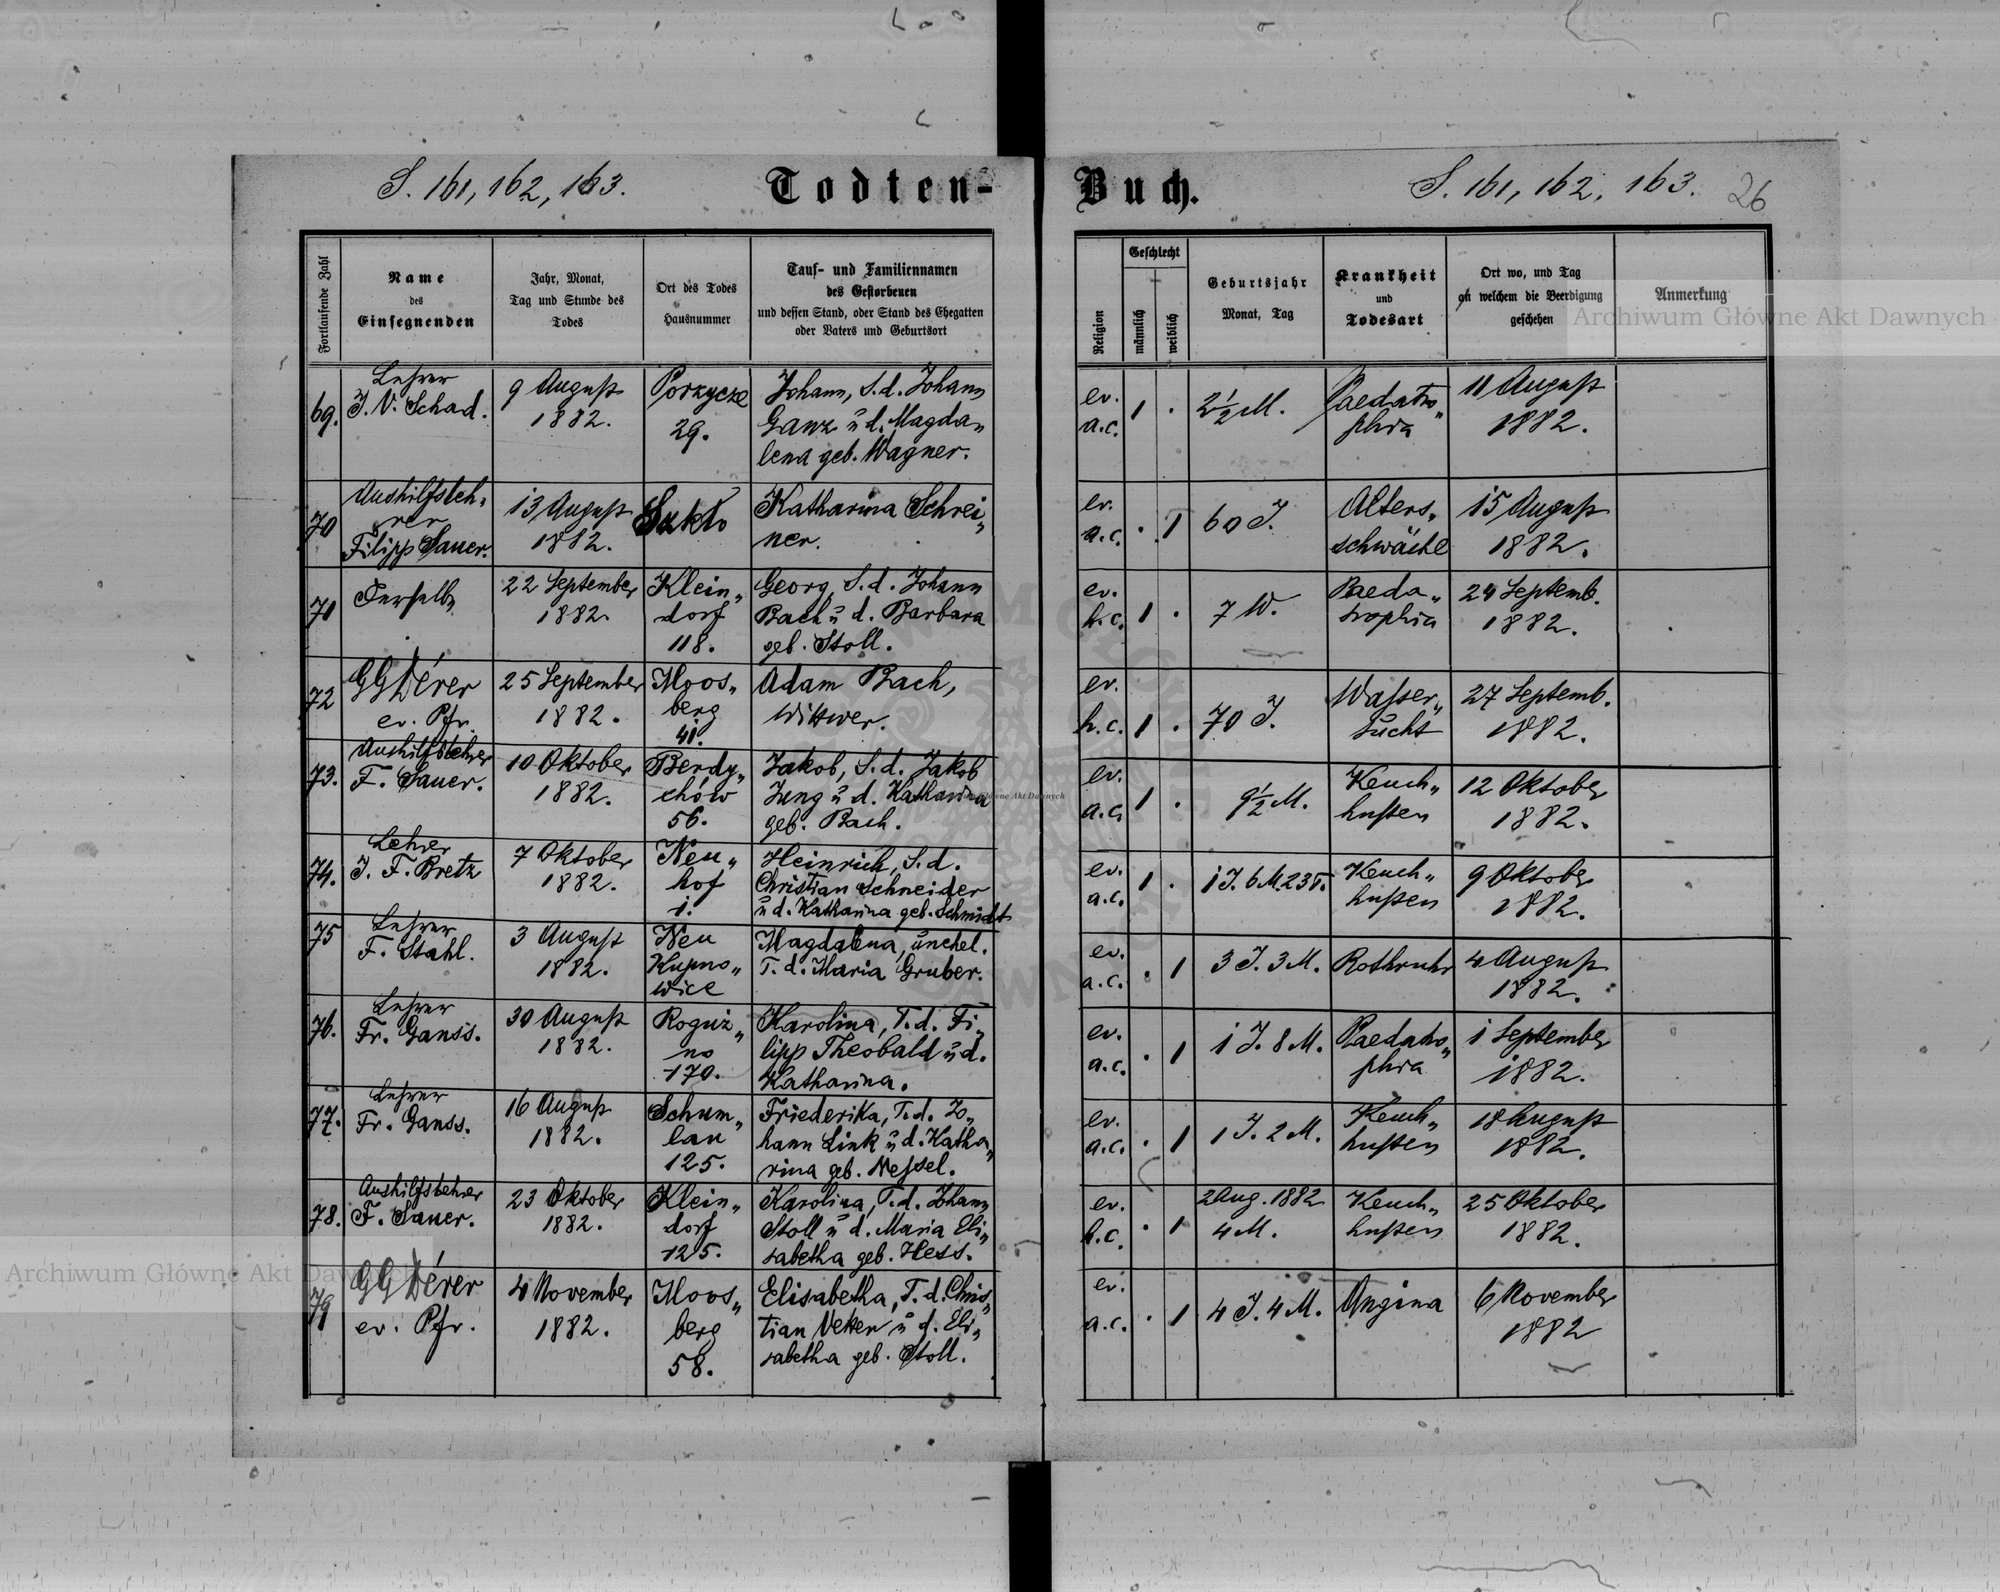 S. 161, 162, 163.
Todten-
Buch.
S. 161, 162, 163.
26
Fortlaufende Zahl
Name
des
Einsegnenden
Jahr, Monat,
Tag und Stunde des
Todes
Ort des Todes
Hausnummer
Tauf- und Familiennamen
des Gestorbenen
und dessen Stand, oder Stand des Ehegatten
oder Vaters und Geburtsort
Religion
Geschlecht
männlich
weiblich
Geburtsjahr
Monat, Tag
Krankheit
und
Todesart
Ort wo, und Tag
an welchem die Beerdigung
geschehen
Anmerkung
Archiwum Główne Akt Dawnych
69.
Lehrer
J. V. Schad.
9 August
1882.
Porzycze
29.
Johann, S. d. Johann
Ganz u d. Magda„
lena geb. Wagner.
ev.
a.c.
1 .
2½ M.
Paedatro„
phia
11 August
1882.
70
Aushilfsleh„
rer
Filipp Sauer.
13 August
1882.
Katharina Schrei„
ner.
ev.
a.c.
. 1
60 J.
Alters„
schwäche
15 August
1882.
71
Derselbe
22 September
1882.
Klein„
dorf
118.
Georg, S. d. Johann
Bach u d. Barbara
geb. Stoll.
ev.
h.c.
1 .
7 W.
Paeda„
trophia
24 Septemb.
1882.
72
GGDérer
ev. Pfr.
25 September
1882.
Moos„
berg
41.
Adam Bach,
Wittwer.
ev.
h.c.
1 .
70 J.
Wasser„
sucht
27 Septemb.
1882.
73.
Aushilfslehrer
F. Sauer.
10 Oktober
1882.
Berdy„
chów
56.
Jakob, S. d. Jakob
Jung u d. Katharina
geb. Bach.
ev.
a.c.
1 .
9½ M.
Keuch„
husten
12 Oktober
1882.
74.
Lehrer
J. F. Bretz
7 Oktober
1882.
Neu„
hof
1.
Heinrich, S. d.
Christian Schneider
u d. Katharina geb. Schmidt
ev.
a.c.
1 .
1 J. 6 M. 23 T.
Keuch„
husten
9 Oktober
1882.
75
Lehrer
F. Stahl.
3 August
1882.
Neu
Kupno„
wice
Magdalena, unehel.
T. d. Maria Gruber.
ev.
a.c.
. 1
3 J. 3 M.
Rothruhr
4 August
1882.
76.
Lehrer
Fr. Ganss.
30 August
1882.
Roguz„
no
170.
Karolina, T. d. Fi„
lipp Theobald u d.
Katharina.
ev.
a.c.
. 1
1 J. 8 M.
Paedatro„
phia
1 September
1882.
77.
Lehrer
Fr. Ganss.
16 August
1882.
Schum„
lau
125.
Friederika, T. d. Jo„
hann Link u d. Katha„
rina geb. Nessel.
ev.
a.c.
. 1
1 J. 2 M.
Keuch„
husten
18 August
1882.
78.
Aushilfslehrer
F. Sauer.
23 Oktober
1882.
Klein„
dorf
125.
Karolina, T. d. Johann
Stoll u d. Maria Eli„
sabetha geb. Hess.
ev.
h.c.
. 1
2 Aug. 1882
4 M.
Keuch„
husten
25 Oktober
1882.
79
GGDérer
ev. Pfr.
4 November
1882.
Moos„
berg
58.
Elisabetha, T. d. Chris„
tian Vetter u d. Eli„
sabetha geb. Stoll.
ev.
a.c.
. 1
4 J. 4 M.
Angina
6 November
1882
Archiwum Główne Akt Dawnych